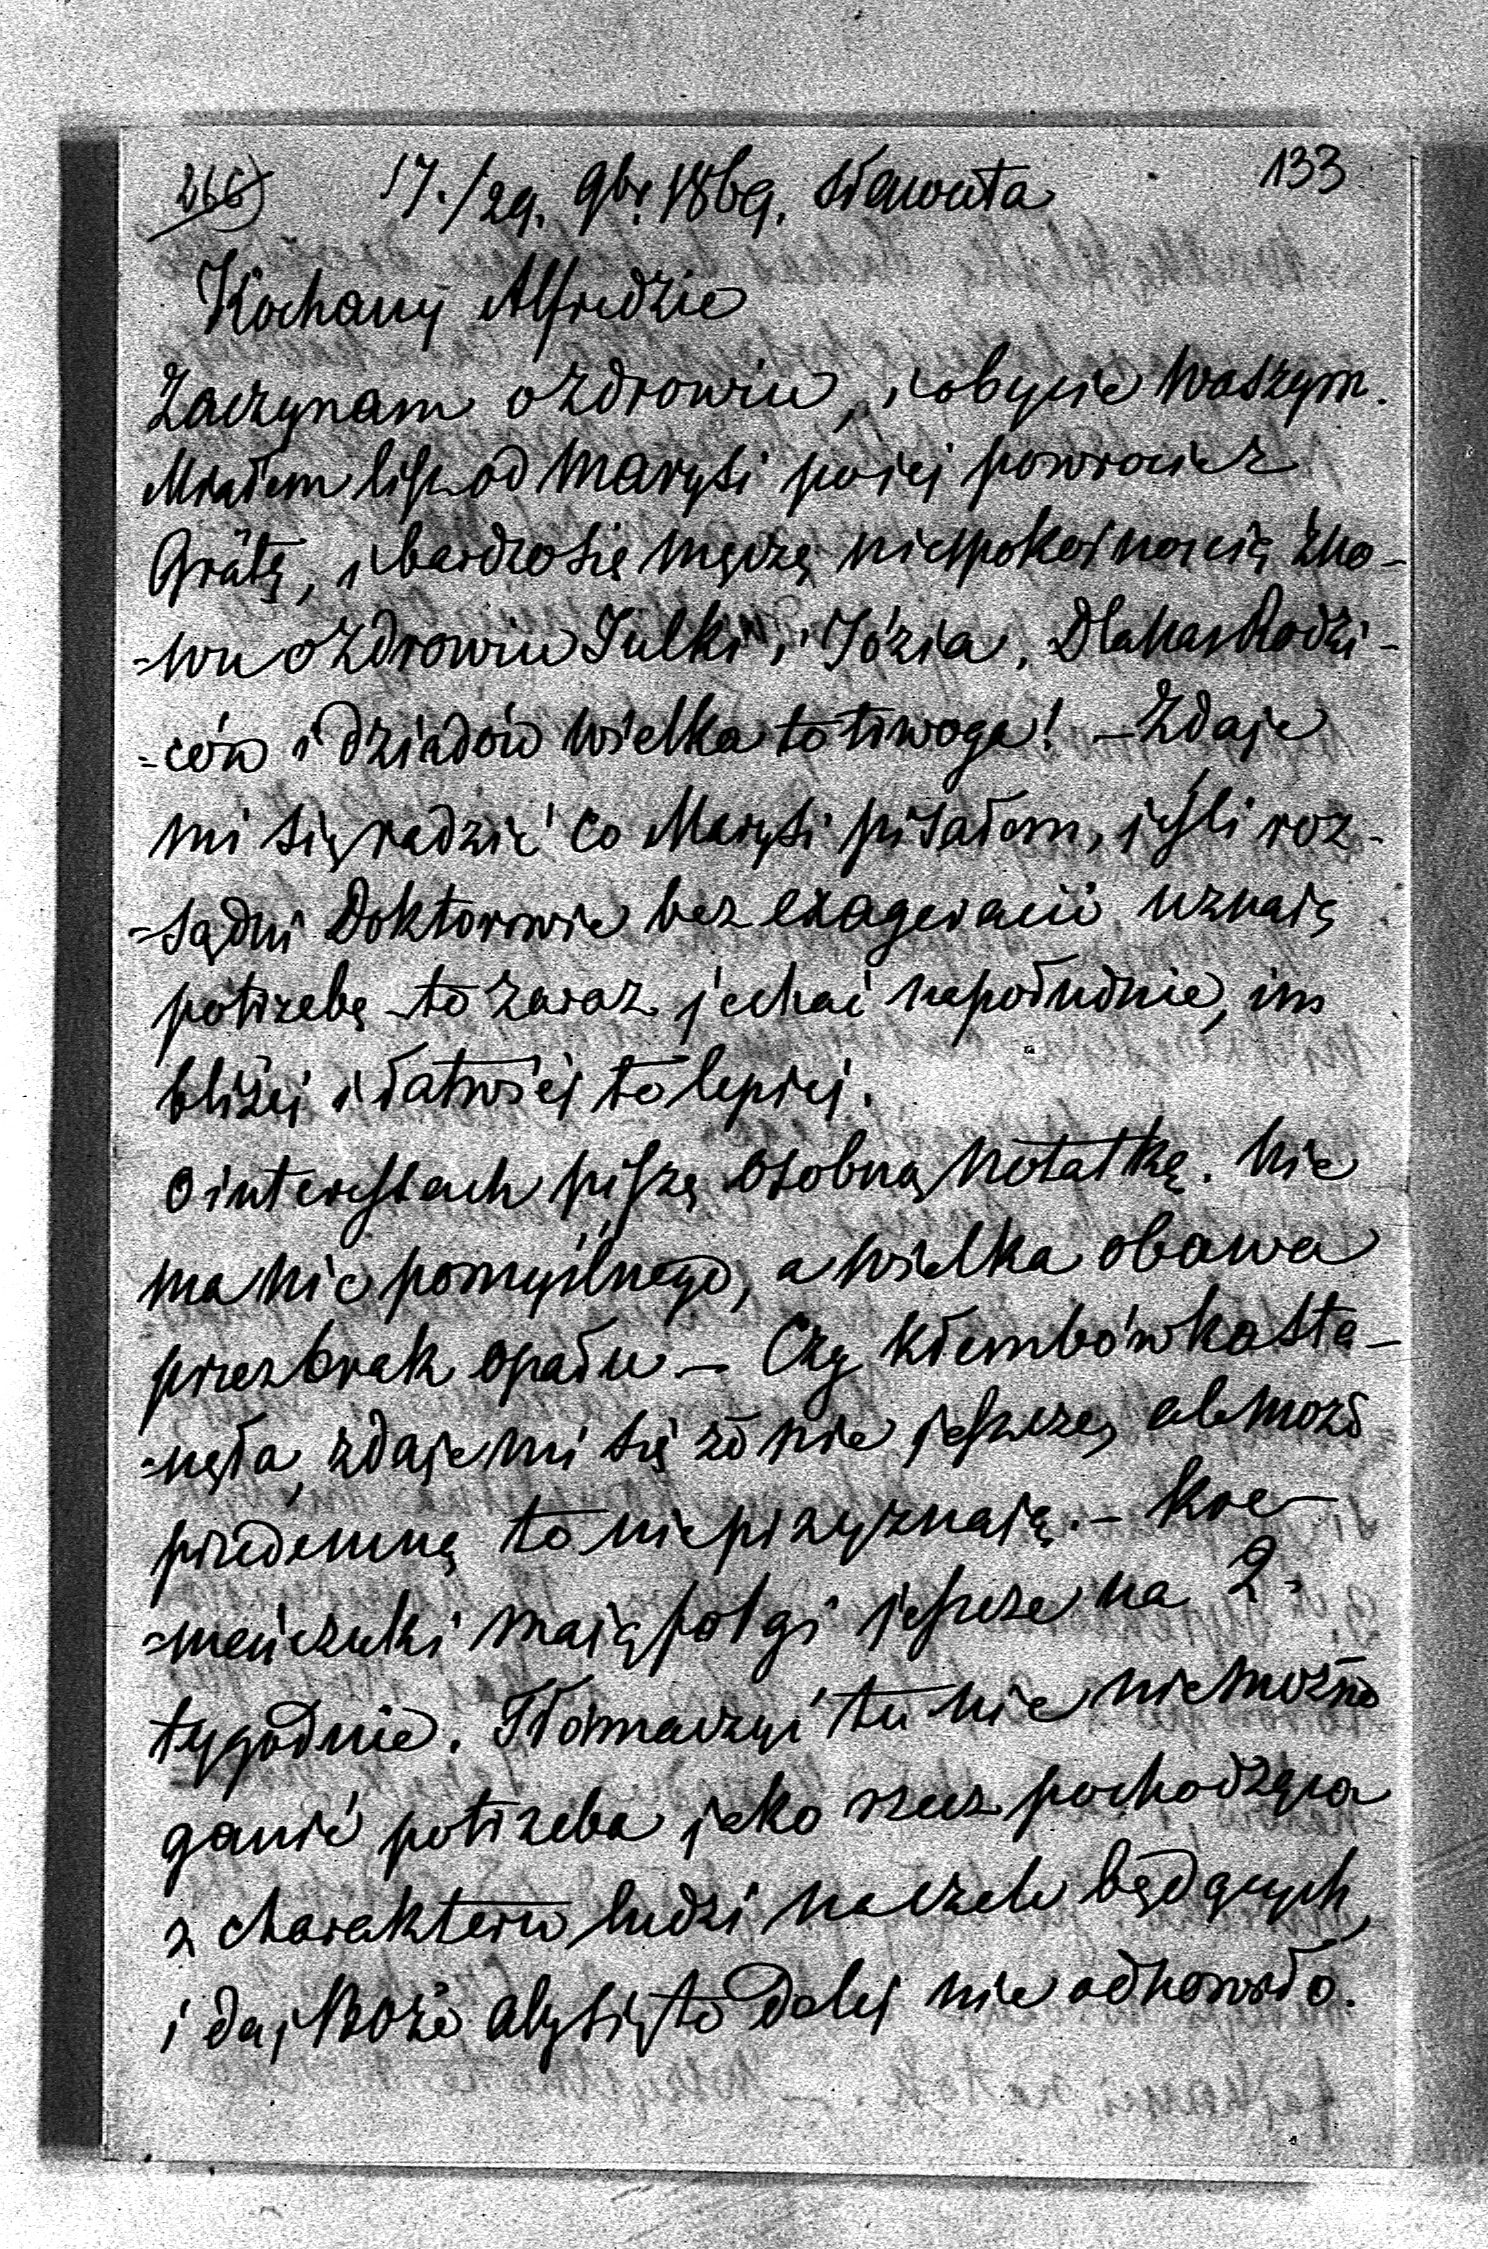 266) 17./29. 9br. 1869. Sławuta 133
Kochany Alfredzie
Zaczynam o zdrowiu, i obycie Waszym.
Miałem list od Marysi po jej powrocie z
Grätz, i bardzo się męczę niespokojnością zno-
-wu o zdrowiu Julki i Józia. Dla nas Rodzi-
-ców i dziadów wielka to trwoga! – Zdaje
mi się radzić co Marysi pisałem, jeśli roz-
-sądni Doktorowie bez exageracii uznaią
potrzebę to zaraz jechać na południe, im
bliżej i łatwiej to lepiej.
O interessach piszę osobną notatkę. Nie
ma nic pomyślnego, a wielka obawa
przez brak opału – Czy Kłembówka sta-
-nęła, zdaje mi się że nie jeszcze, ale może
przedemną to nie przyznają. – Kre-
-meńczuki maią jeszcze na 2.
tygodnie. Tłómaczyć tu nic nie można
ganić potrzeba jako rzecz pochodząca
z charakteru ludzi na czele będących,
i daj Boże aby się to dalej nie odnowiło.